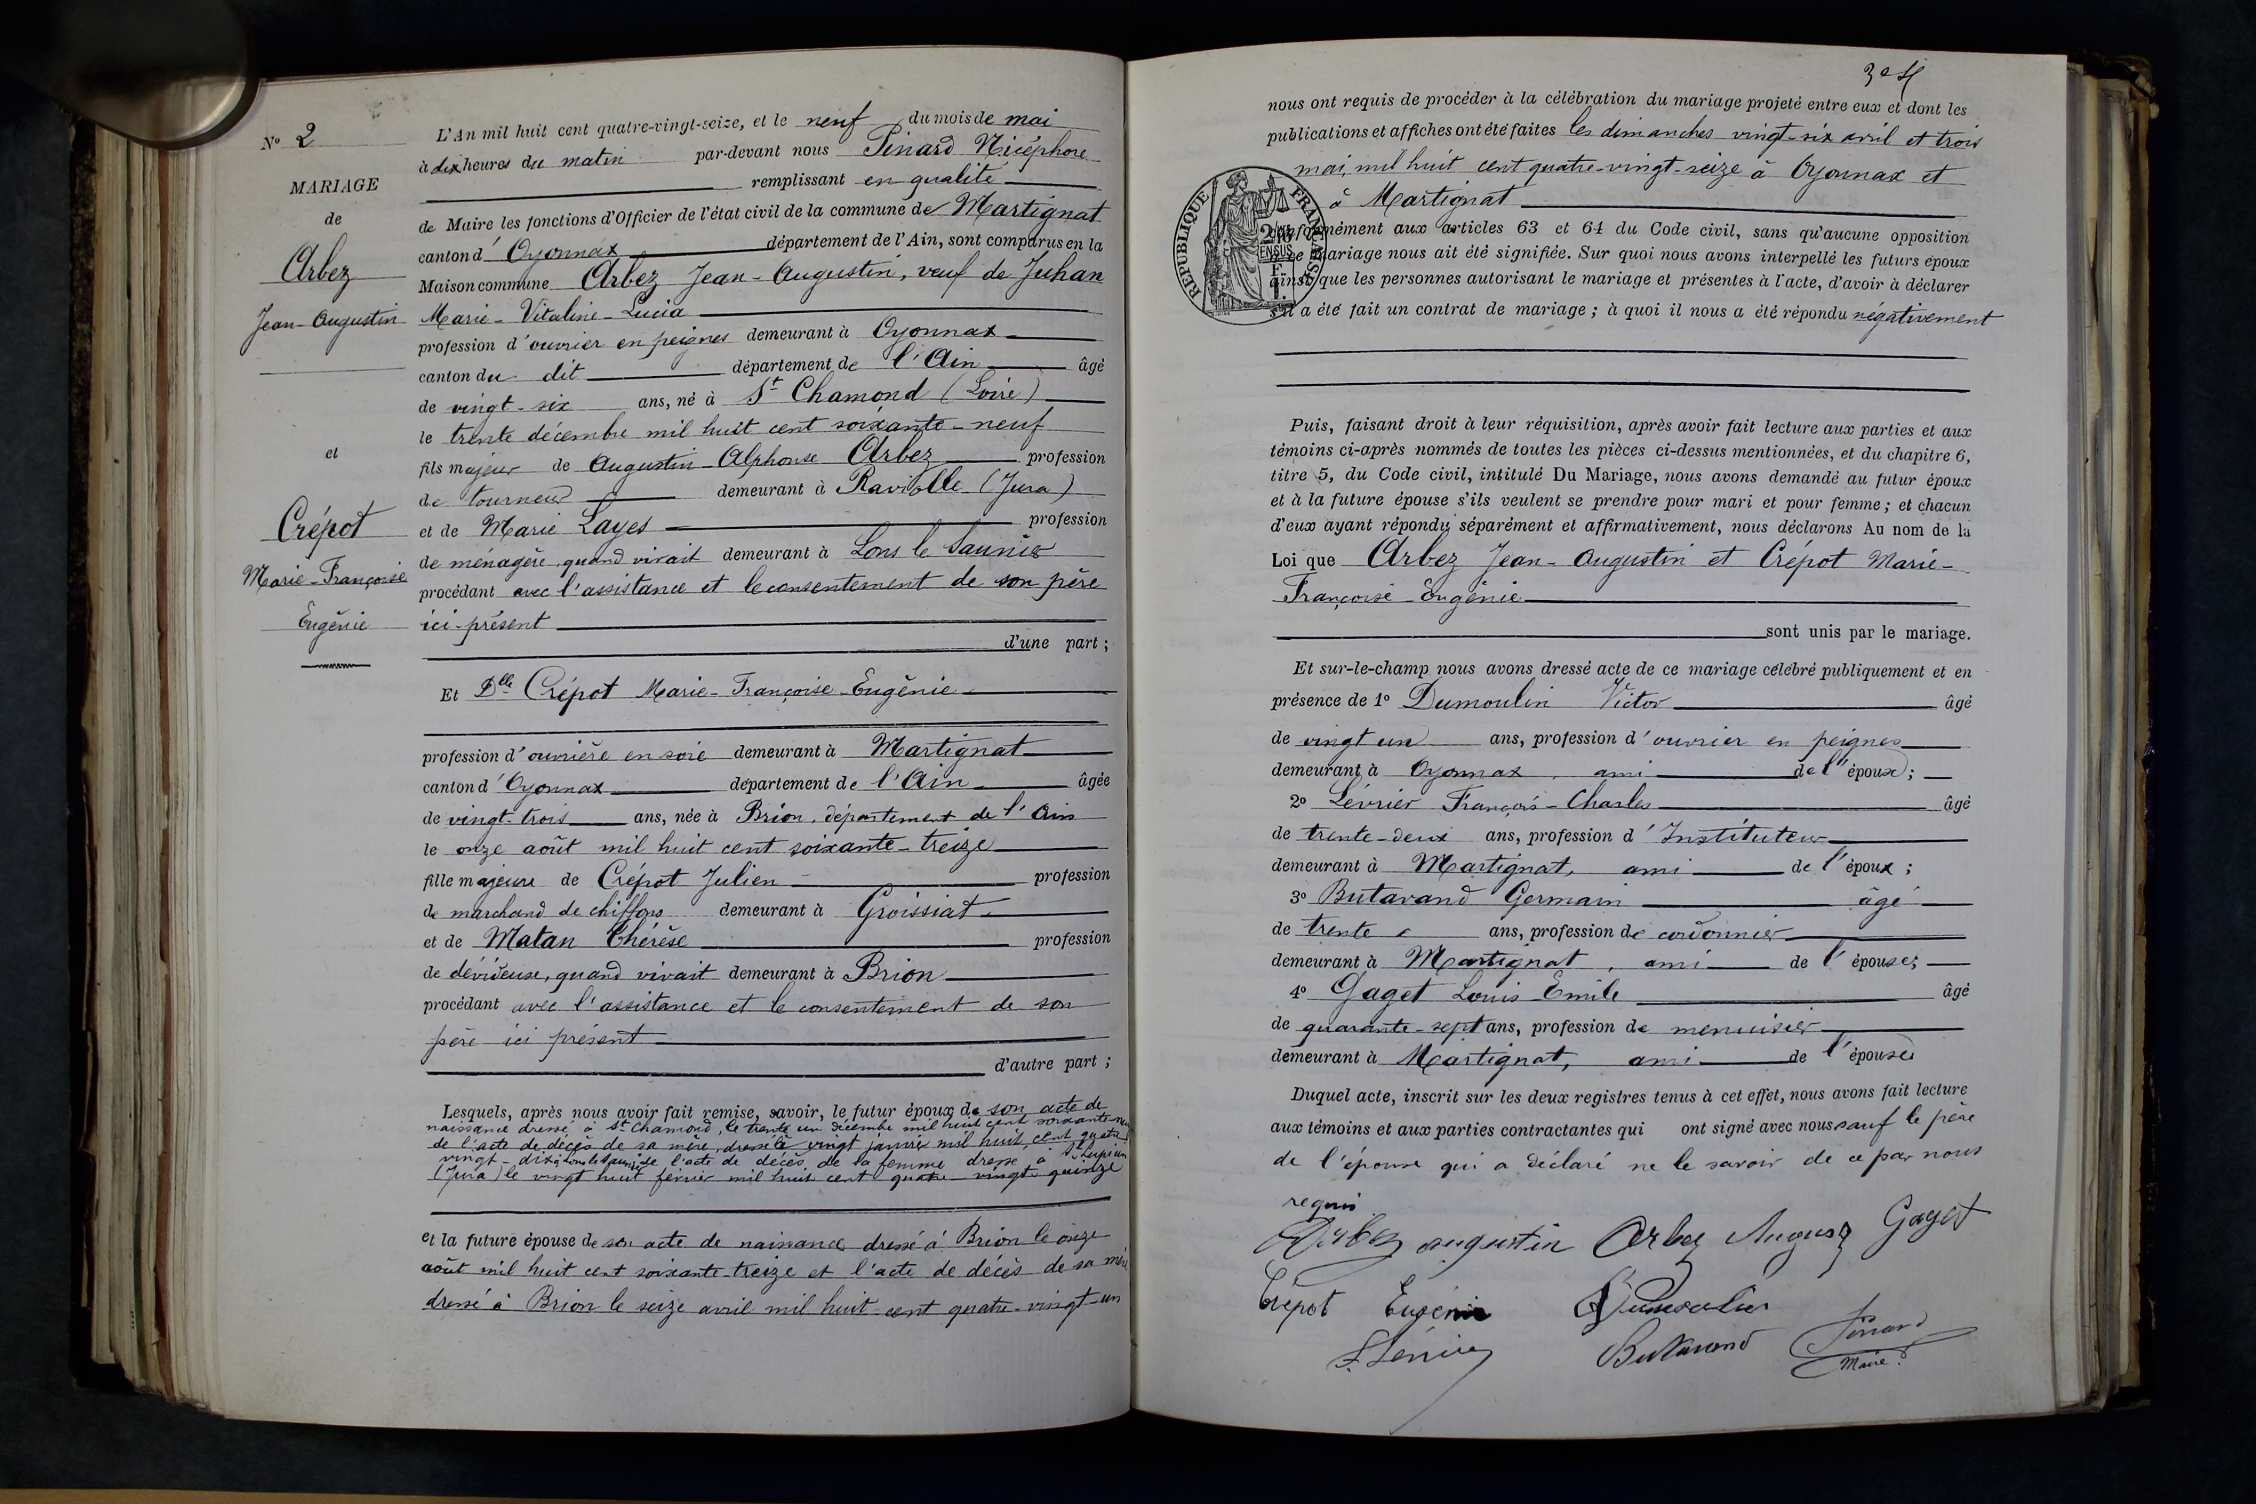 N° 2
MARIAGE
de
Arbez
Jean-Augustin
et
Crépot
Marie-Françoise
Eugénie
L'An mil huit cent quatre-vingt-seize, et le neuf du mois de mai
à dix heures du matin par-devant nous Pinard Nicéphore
remplissant en qualité
de Maire les fonctions d'Officier de l'état civil de la commune de Martignat
canton d'Oyonnax département de l'Ain, sont comparus en la
Maison commune Arbez Jean-Augustin, veuf de Juhan
Marie-Vitaline-Lucia
profession d'ouvrier en peignes demeurant à Oyonnax
canton du dit département de l'Ain âgé
de vingt-six ans, né à St Chamond (Loire)
le trente décembre mil huit cent soixante-neuf
fils majeur de Augustin-Alphonse Arbez profession
de tourneur demeurant à Ravilolle (Jura)
et de Marie Layes profession
de ménagère, quand vivait demeurant à Lons le Saunier
procédant avec l'assistance et le consentement de son père
ici-présent
d'une part ;
Et Dlle Crépot Marie-Françoise-Eugénie
profession d'ouvrière en soie demeurant à Martignat
canton d'Oyonnax département de l'Ain âgée
de vingt-trois ans, née à Brion, département de l'Ain
le onze août mil huit cent soixante-treize
fille majeure de Crépot Julien profession
de marchand de chiffons demeurant à Groissiat
et de Matan Thérèse profession
de dévideuse, quand vivait demeurant à Brion
procédant avec l'assistance et le consentement de son
père ici présent
d'autre part ;
Lesquels, après nous avoir fait remise, savoir, le futur époux de son acte de
naissance dressé à St Chamond, le trente un décembre mil huit cent soixante-neuf
de l'acte de décès de sa mère dressé le vingt janvier mil huit cent quatre
vingt-dix à Lons le Saunier de l'acte de décès de sa femme dressé à St Lupicin
(Jura) le vingt huit février mil huit cent quatre-vingt-quinze
et la future épouse de son acte de naissance dressé à Brion le onze
août mil huit cent soixante-treize et l'acte de décès de sa mère
dressé à Brion le seize avril mil huit-cent quatre-vingt-un
nous ont requis de procéder à la célébration du mariage projeté entre eux et dont les
publications et affiches ont été faites les dimanches vingt-six avril et trois
mai, mil huit cent quatre-vingt-seize à Oyonnax et
à Martignat
RÉPUBLIQUE FRANÇAISE
conformément aux articles 63 et 64 du Code civil, sans qu'aucune opposition
à ce mariage nous ait été signifiée. Sur quoi nous avons interpellé les futurs époux
ainsi que les personnes autorisant le mariage et présentes à l'acte, d'avoir à déclarer
s'il a été fait un contrat de mariage ; à quoi il nous a été répondu négativement
Puis, faisant droit à leur réquisition, après avoir fait lecture aux parties et aux
témoins ci-après nommés de toutes les pièces ci-dessus mentionnées, et du chapitre 6,
titre 5, du Code civil, intitulé Du Mariage, nous avons demandé au futur époux
et à la future épouse s'ils veulent se prendre pour mari et pour femme ; et chacun
d'eux ayant répondu séparément et affirmativement, nous déclarons Au nom de la
Loi que Arbez Jean-Augustin et Crépot Marie-
Françoise-Eugénie
sont unis par le mariage.
Et sur-le-champ nous avons dressé acte de ce mariage célébré publiquement et en
présence de 1° Dumoulin Victor âgé
de vingt un ans, profession d'ouvrier en peignes
demeurant à Oyonnax, ami de l'époux ;
2° Lévrier François-Charles âgé
de trente-deux ans, profession d'Instituteur
demeurant à Martignat, ami de l'époux ;
3° Butavand Germain âgé
de trente ans, profession de cordonnier
demeurant à Martignat, ami de l'épouse ;
4° Gaget Louis-Emile âgé
de quarante-sept ans, profession de menuisier
demeurant à Martignat, ami de l'épouse
Duquel acte, inscrit sur les deux registres tenus à cet effet, nous avons fait lecture
aux témoins et aux parties contractantes qui ont signé avec nous sauf le père
de l'épouse qui a déclaré ne le savoir de ce par nous
requis
Arbez augustin Arbez August Gaget
Crépot Eugénie Dumoulin
Butavand Pinard
Maire